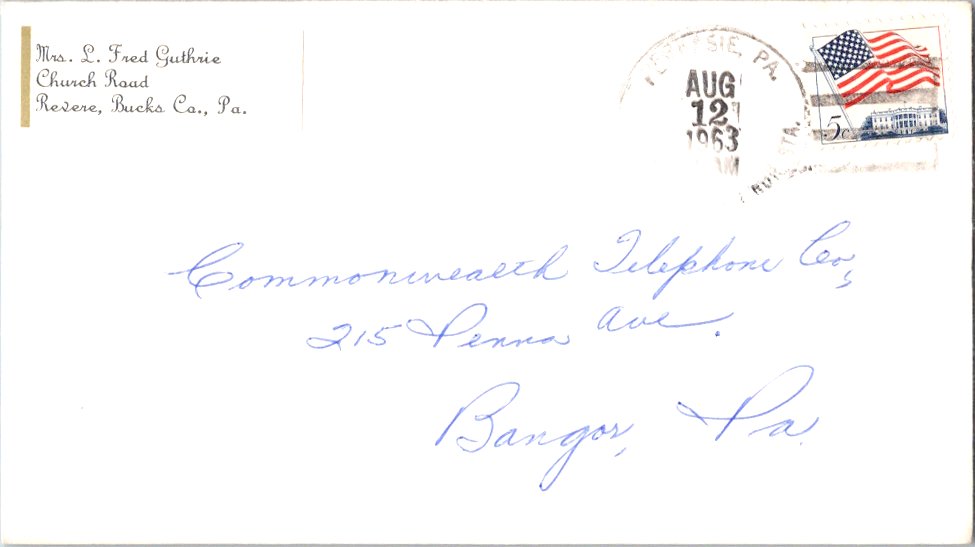 Mrs. L. Fred Guthrie
Church Road
Revere, Bucks Co., Pa.
PA.
AUG
12
1963
AM
RUR. STA.
5c
Commonwealth Telephone Co,
215 Penna Ave.
Bangor, Pa.